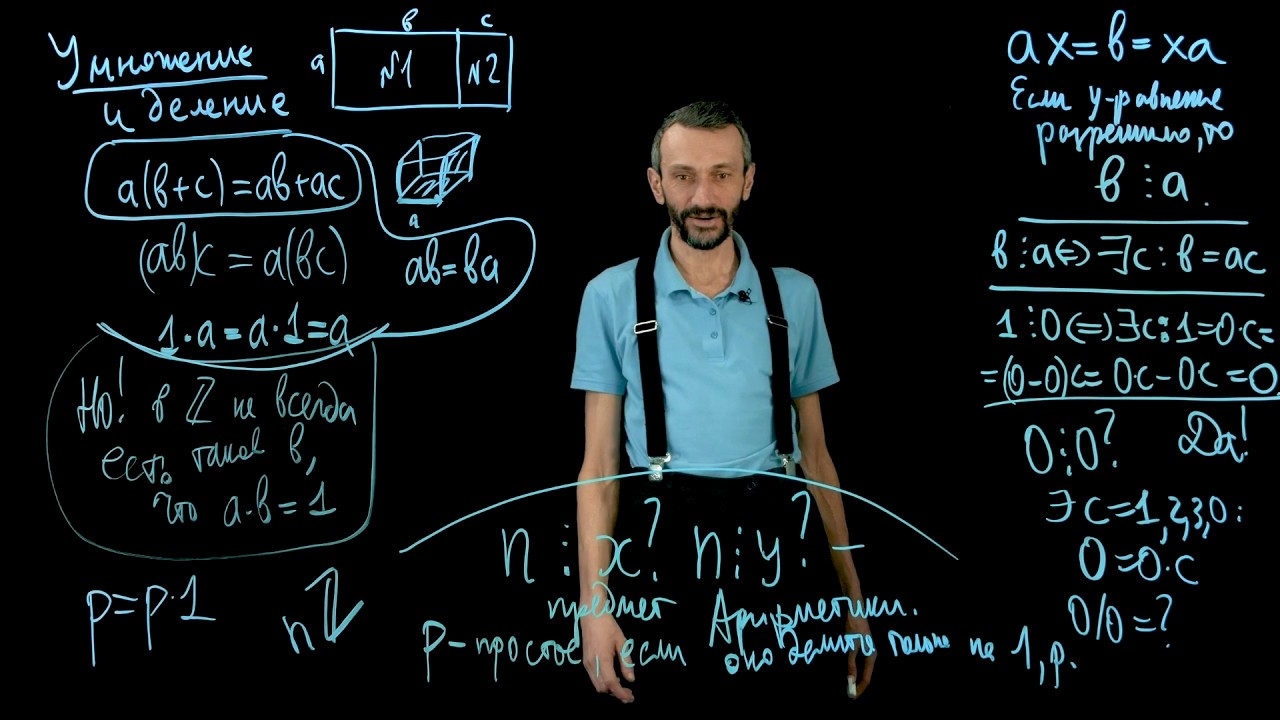 Умножение
и деление
в с
а №1 №2
a(b+c)=ab+ac
a
(ab)c = a(bc)
ab=ba
1·a=a·1=a
Но! в ℤ не всегда
есть такое b,
что a·b=1
p=p·1
nℤ
n⋮x? n⋮y? –
предмет Арифметики.
p–простое, если оно делится только на 1, p.
ax=b=xa
Если ур-равнение
разрешимо, то
b⋮a.
b⋮a⇔∃c:b=ac
1⋮0⇔∃c:1=0·c=
=(0-0)c=0c-0c=0
0⋮0? Да!
∃c=1,2,3,0:
0=0·c
0/0=?